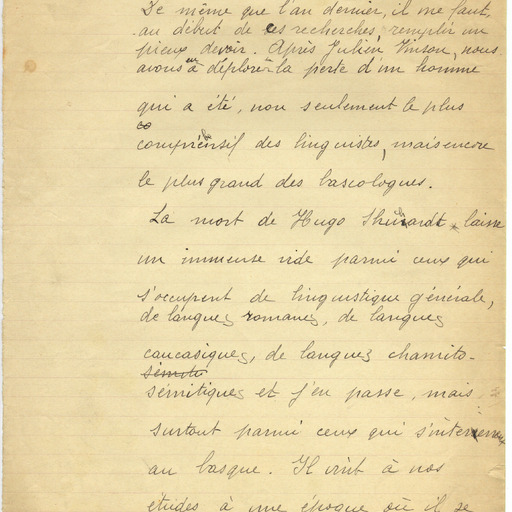 De même que l'an dernier, il me faut,
au début de ces recherches, remplir un
pieux devoir. Après Julien Vinson, nous
avons eu à déplorer la perte d'un homme
qui a été, non seulement le plus
co
compréhensif des linguistes, mais encore
le plus grand des bascologues.
La mort de Hugo Shuhardt laisse
un immense vide parmi ceux qui
s'occupent de linguistique générale,
de langues romanes, de langues
caucasiques, de langues chamito-
sémiti
sémitiques et j'en passe, mais
surtout parmi ceux qui s'intéressent
au basque. Il vint à nos
études à une époque où il se